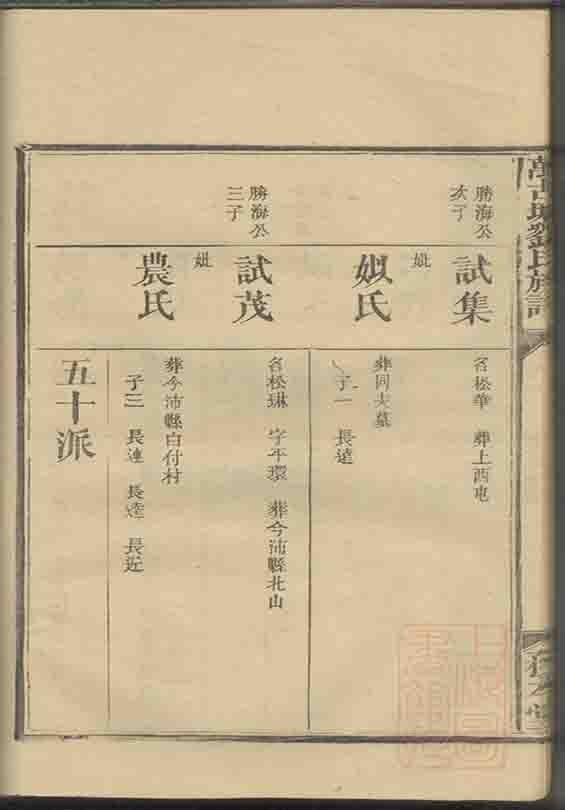 勝海公
次子
試集
名松華 葬上西屯
妣
姒氏
葬同夫墓
子一 長遠
勝海公
三子
試茂
名松琳 字平環 葬今沛縣北山
妣
農氏
葬今沛縣白付村
子三 長連 長達 長近
五十派